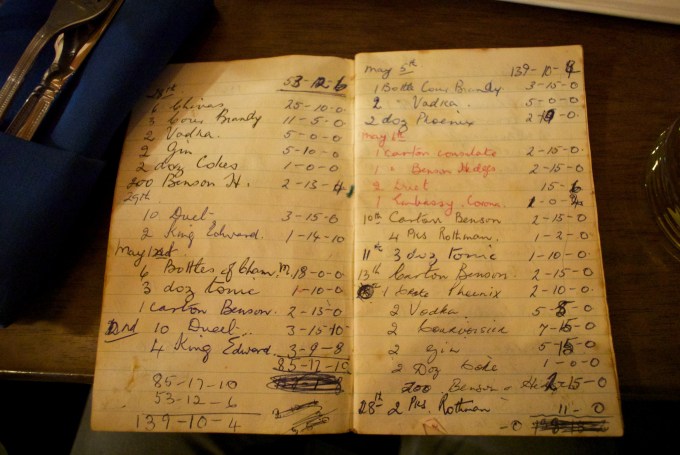 53-12-6
28th
6 Chivas 25-10-0
3 Cour Brandy 11-5-0
2 Vodka 5-0-0
2 Gin 5-10-0
2 doz Cokes 1-0-0
200 Benson H. 2-13-4
29th
10 Duet 3-15-0
2 King Edward. 1-14-10
May 1st
6 Bottles of Cham. M. 18-0-0
3 doz tonic 1-10-0
1 carton Benson 2-15-0
2nd 10 Duet 3-15-10
4 King Edward 3-9-8
85-17-10
85-17-10
53-12-6
139-10-4
May 5th 139-10-4
1 Bottle Cour Brandy 3-15-0
2 " Vodka. 5-0-0
2 doz Phoenix
May 6th
1 Carton Consulate 2-15-0
1 " Benson Hedges 2-15-0
2 Duet 15-
1 Embassy Coron.
10th Carton Benson 2-15-0
4 Pks Rothman. 1-2-0
11th 3 doz tonic 1-10-0
13th Carton Benson. 2-15-0
1 Phoenix 2-10-0
2 Vodka
2 Courvoisier
2 gin
2 Doz Coke 1-0-0
200 Benson + He 2-15-0
28th 2 Pks. Rothman 11-0
-0